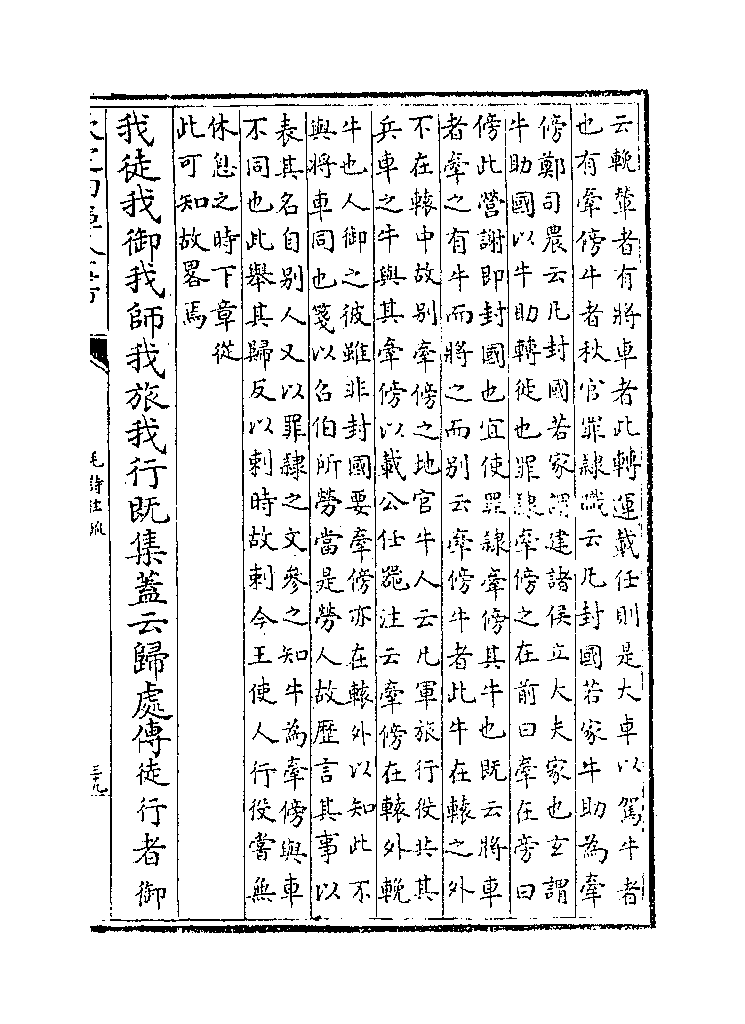 云輓輦者有將車者此轉運載任則是大車以駕牛者
也有牽傍牛者秋官罪隷職云凡封國若家牛助為牽
傍鄭司農云凡封國若家謂建諸侯立大夫家也玄謂
牛助國以牛助轉徙也罪隷牽傍之在前曰牽在旁曰
傍此營謝即封國也宜使罪隷牽傍其牛也既云將車
者牽之有牛而將之而別云牽傍牛者此牛在轅之外
不在轅中故別牽傍之地官牛人云凡軍旅行役共其
兵車之牛與其牽傍以載公任器注云牽傍在轅外輓
牛也人御之彼雖非封國要牽傍亦在轅外以知此不
與將車同也箋以召伯所勞當是勞人故歴言其事以
表其名自別人又以罪隷之文參之知牛為牽傍與車
不同也此舉其歸反以刺時故刺今王使人行役嘗無
休息之時下章從
此可知故畧焉
我徒我御我師我旅我行既集蓋云歸處傳徒行者御
毛詩注疏
三十九